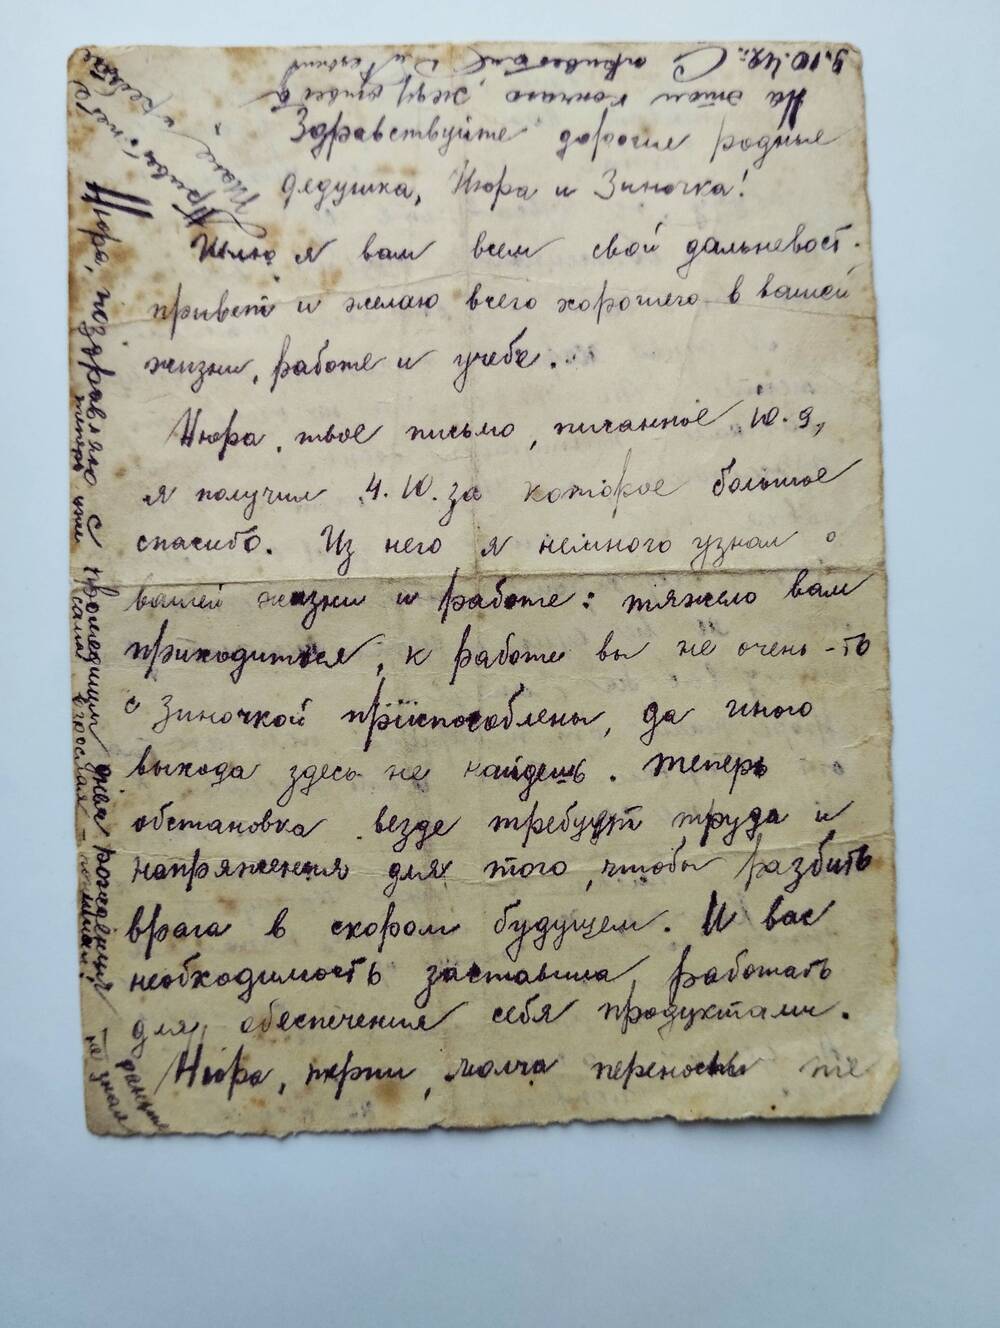 Здравствуйте дорогие родные
дедушка, Нюра и Зиночка!
Шлю я вам всем свой дальневост.
привет и желаю всего хорошего в вашей
жизни, работе и учебе.
Нюра, твое письмо, писанное 10.9,
я получил 4.10. за которое большое
спасибо. Из него я немного узнал о
вашей жизни и работе: тяжело вам
приходиться, к работе вы не очень-то
с Зиночкой приспособлены, да иного
выхода здесь не найдешь. Теперь
обстановка везде требует труда и
напряжения для того, чтобы разбить
врага в скором будущем. И вас
необходимость заставила работать
для обеспечения себя продуктами.
Нюра, терпи, молча переносы те
Нюра, поздравляю с прошедшим днем рождения
теперь уже самая взрослая - помни!
раньше
не знал
Привет
На этом кончаю, жду ответа
9.10.42г. С приветом